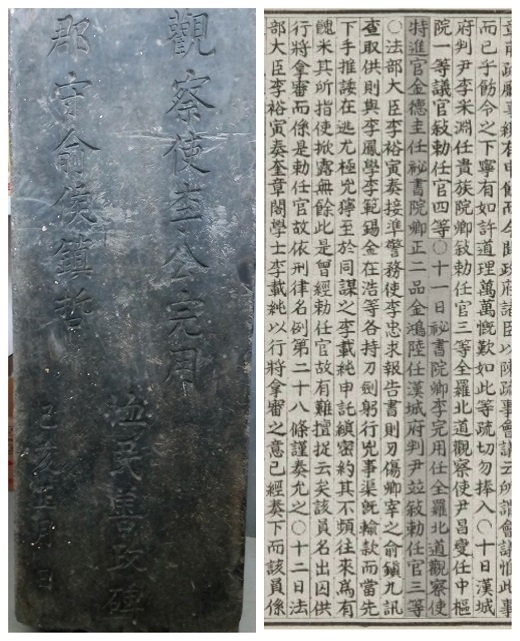 觀察使李公完用
恤民善政碑
郡守兪侯鎭哲
己亥五月 日
而已乎飭令之下寧有如許道理萬萬慨歎如此等疏切勿捧入○十日漢城
府判尹李采淵任貴族院卿敍勅任官三等全羅北道觀察使尹昌燮任中樞
院一等議官敍勅任官四等○十一日祕書院卿李完用任全羅北道觀察使
特進官金德圭任祕書院卿正二品金鴻陸任漢城府判尹並敍勅任官三等
○法部大臣李裕寅奏接準警務使李忠求報告書則刃傷卿宰之俞鎭九訊
查取供則與李鳳學李範錫金在浩等各持刀劍躬行兇事渠旣輸款而當先
下手推諉在逃尤極兇獰至於同謀之李載純申託縝密約其不煩往來爲有
醜米其所指使掀露無餘此是曾經勅任官故有難擅捉云矣該員名出囚供
行將拿審而係是勅任官故依刑律名例第二十八條謹奏允之○十二日法
部大臣李裕寅奏奎章閣學士李載純以行將拿審之意已經奏下而該員係